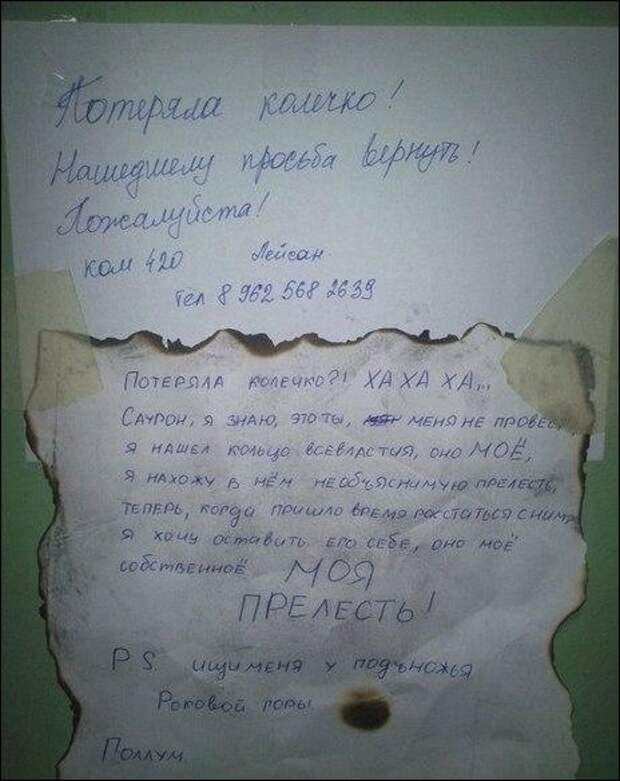 Потеряла колечко!
Нашедшему просьба вернуть!
Пожалуйста!
ком 420 Лейсан
тел 8 962 568 2639
ПОТЕРЯЛА КОЛЕЧКО?! ХА ХА ХА...
САУРОН, Я ЗНАЮ, ЭТО ТЫ, МЕНЯ НЕ ПРОВЕС
Я НАШЕЛ КОЛЬЦО ВСЕВЛАСТИЯ, ОНО МОЁ,
Я НАХОЖУ В НЁМ НЕОБЪЯСНИМУЮ ПРЕЛЕСТЬ,
ТЕПЕРЬ, КОГДА ПРИШЛО ВРЕМЯ РАССТАТЬСЯ С НИМ
Я ХОЧУ ОСТАВИТЬ ЕГО СЕБЕ, ОНО МОЁ
СОБСТВЕННОЕ МОЯ
ПРЕЛЕСТЬ!
P S. ИЩИ МЕНЯ У ПОДЪНОЖЬЯ
РОКОВОЙ ГОРЫ
ГОЛЛУМ